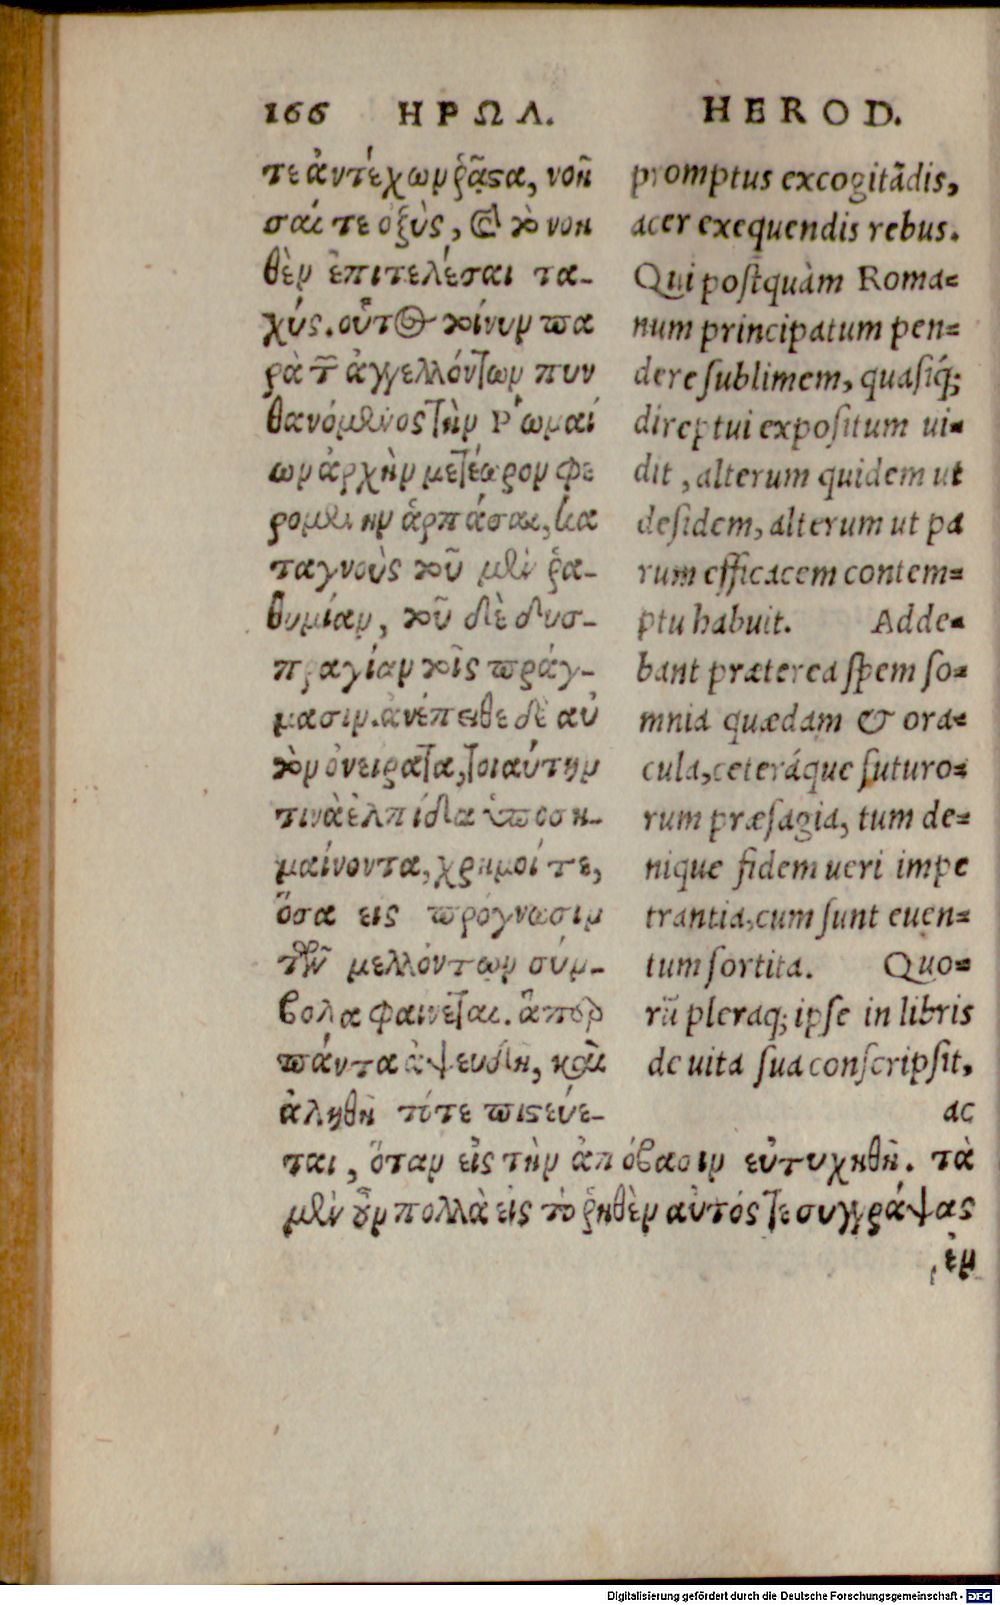 166 ΗΡΩΔ.
τε ἀντέχων ῥᾷστα, νοῆ
σαί τε ὀξὺς, καὶ τὸ νοη
θὲν ἐπιτελέσαι τα-
χύς. οὗτος τοίνυν πα
ρὰ τῶν ἀγγελλόντων πυν
θανόμενος τὴν Ῥωμαί
ων ἀρχὴν μετέωρον φε
ρομένην ἁρπάσαι, κα
ταγνοὺς τοῦ μὲν ῥα-
θυμίαν, τοῦ δὲ δυσ-
πραγίαν τοῖς πράγ-
μασιν. ἀνέπειθε δὲ αὐ
τὸν ὀνείρατα, τοιαύτην
τινὰ ἐλπίδα ὑποση-
μαίνοντα, χρησμοί τε,
ὅσα εἰς πρόγνωσιν
τῶν μελλόντων σύμ-
βολα φαίνεται. ἅπερ
πάντα ἀψευδῆ, καὶ
ἀληθῆ τότε πιστεύε-
ται, ὅταν εἰς τὴν ἀπόβασιν εὐτυχηθῇ. τὰ
μὲν οὖν πολλὰ εἰς τὸ ῥηθὲν αὐτός τε συγγράψας
ἐν
HEROD.
promptus excogitãdis,
acer exequendis rebus.
Qui postquàm Roma=
num principatum pen=
dere sublimem, quasiq́;
direptui expositum ui=
dit, alterum quidem ut
desidem, alterum ut pa
rum efficacem contem=
ptu habuit. Adde=
bant præterea spem so=
mnia quædam & ora=
cula, ceteráque futuro=
rum præsagia, tum de=
nique fidem ueri impe
trantia, cum sunt euen=
tum sortita. Quo=
rũ pleraq; ipse in libris
de uita sua conscripsit,
ac
Digitalisierung gefördert durch die Deutsche Forschungsgemeinschaft - DFG